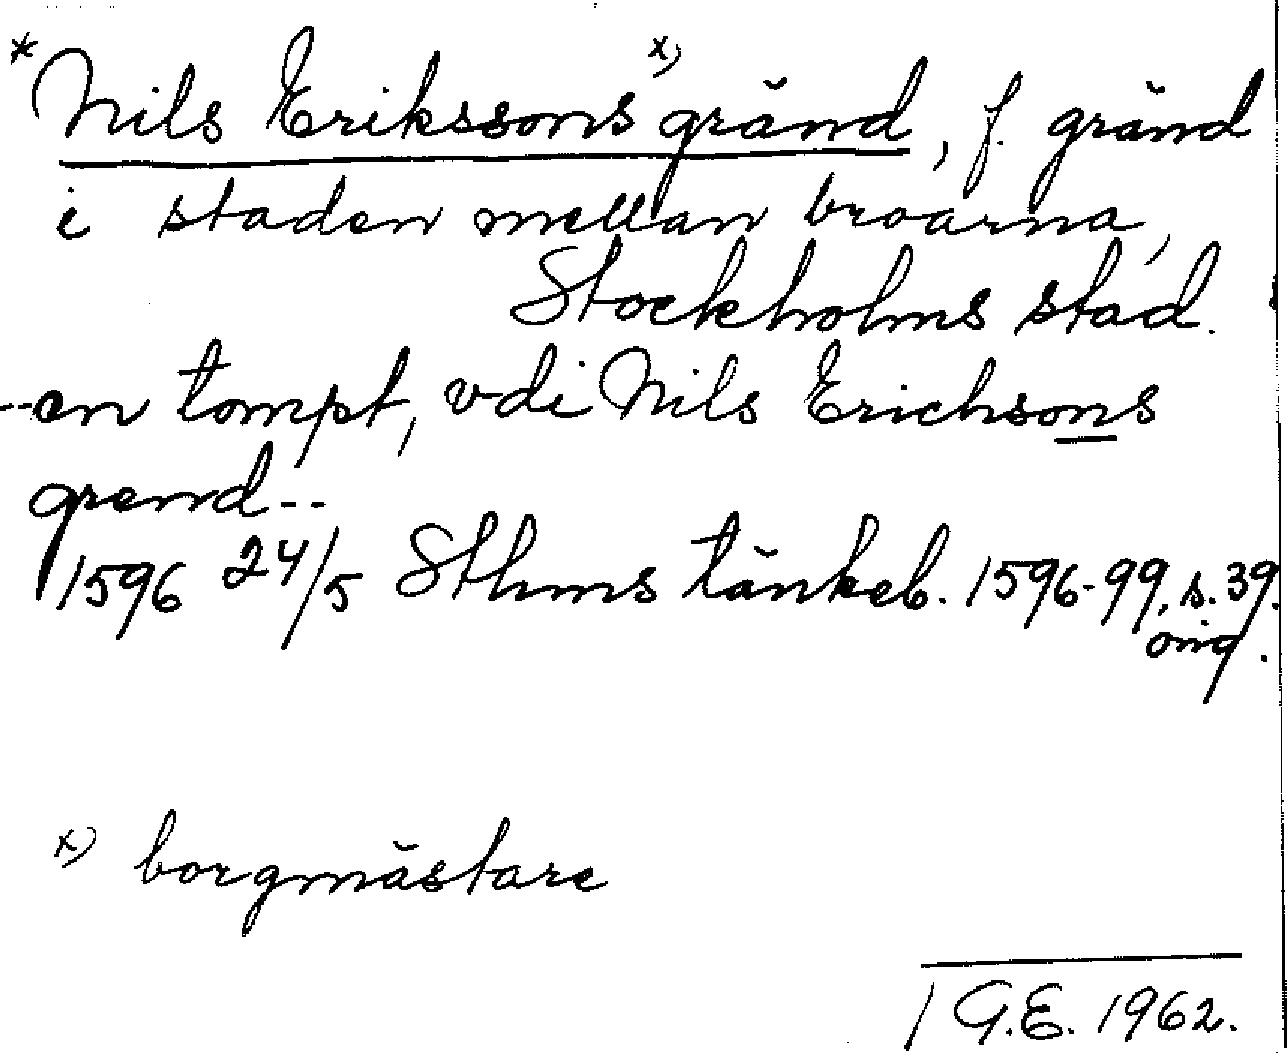 * Nils Erikssons x) gränd, f. gränd
i staden mellan broarna,
Stockholms stad.
--en tompt, vdi Nils Erichsons
grend--
1596 24/5 Sthms tänkeb. 1596-99, s. 39.
orig.
x) borgmästare
/ G.E. 1962.